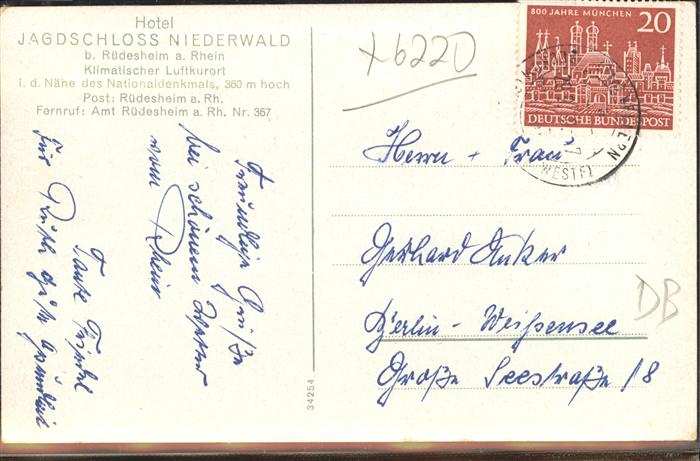 Hotel
JAGDSCHLOSS NIEDERWALD
b. Rüdesheim a. Rhein
Klimatischer Luftkurort
i. d. Nähe des Nationaldenkmals, 360 m hoch
Post: Rüdesheim a. Rh.
Fernruf: Amt Rüdesheim a. Rh. Nr. 367
+6220
800 JAHRE MÜNCHEN
20
DEUTSCHE BUNDESPOST
(WESTF)
Herrn + Frau
Gerhard Anker
Berlin-Weißensee
Große Seestraße 18
DB
Freundliche Grüße
bei schönem Wetter
vom Rhein
Tante Friedel
Für Ruth gute
34254